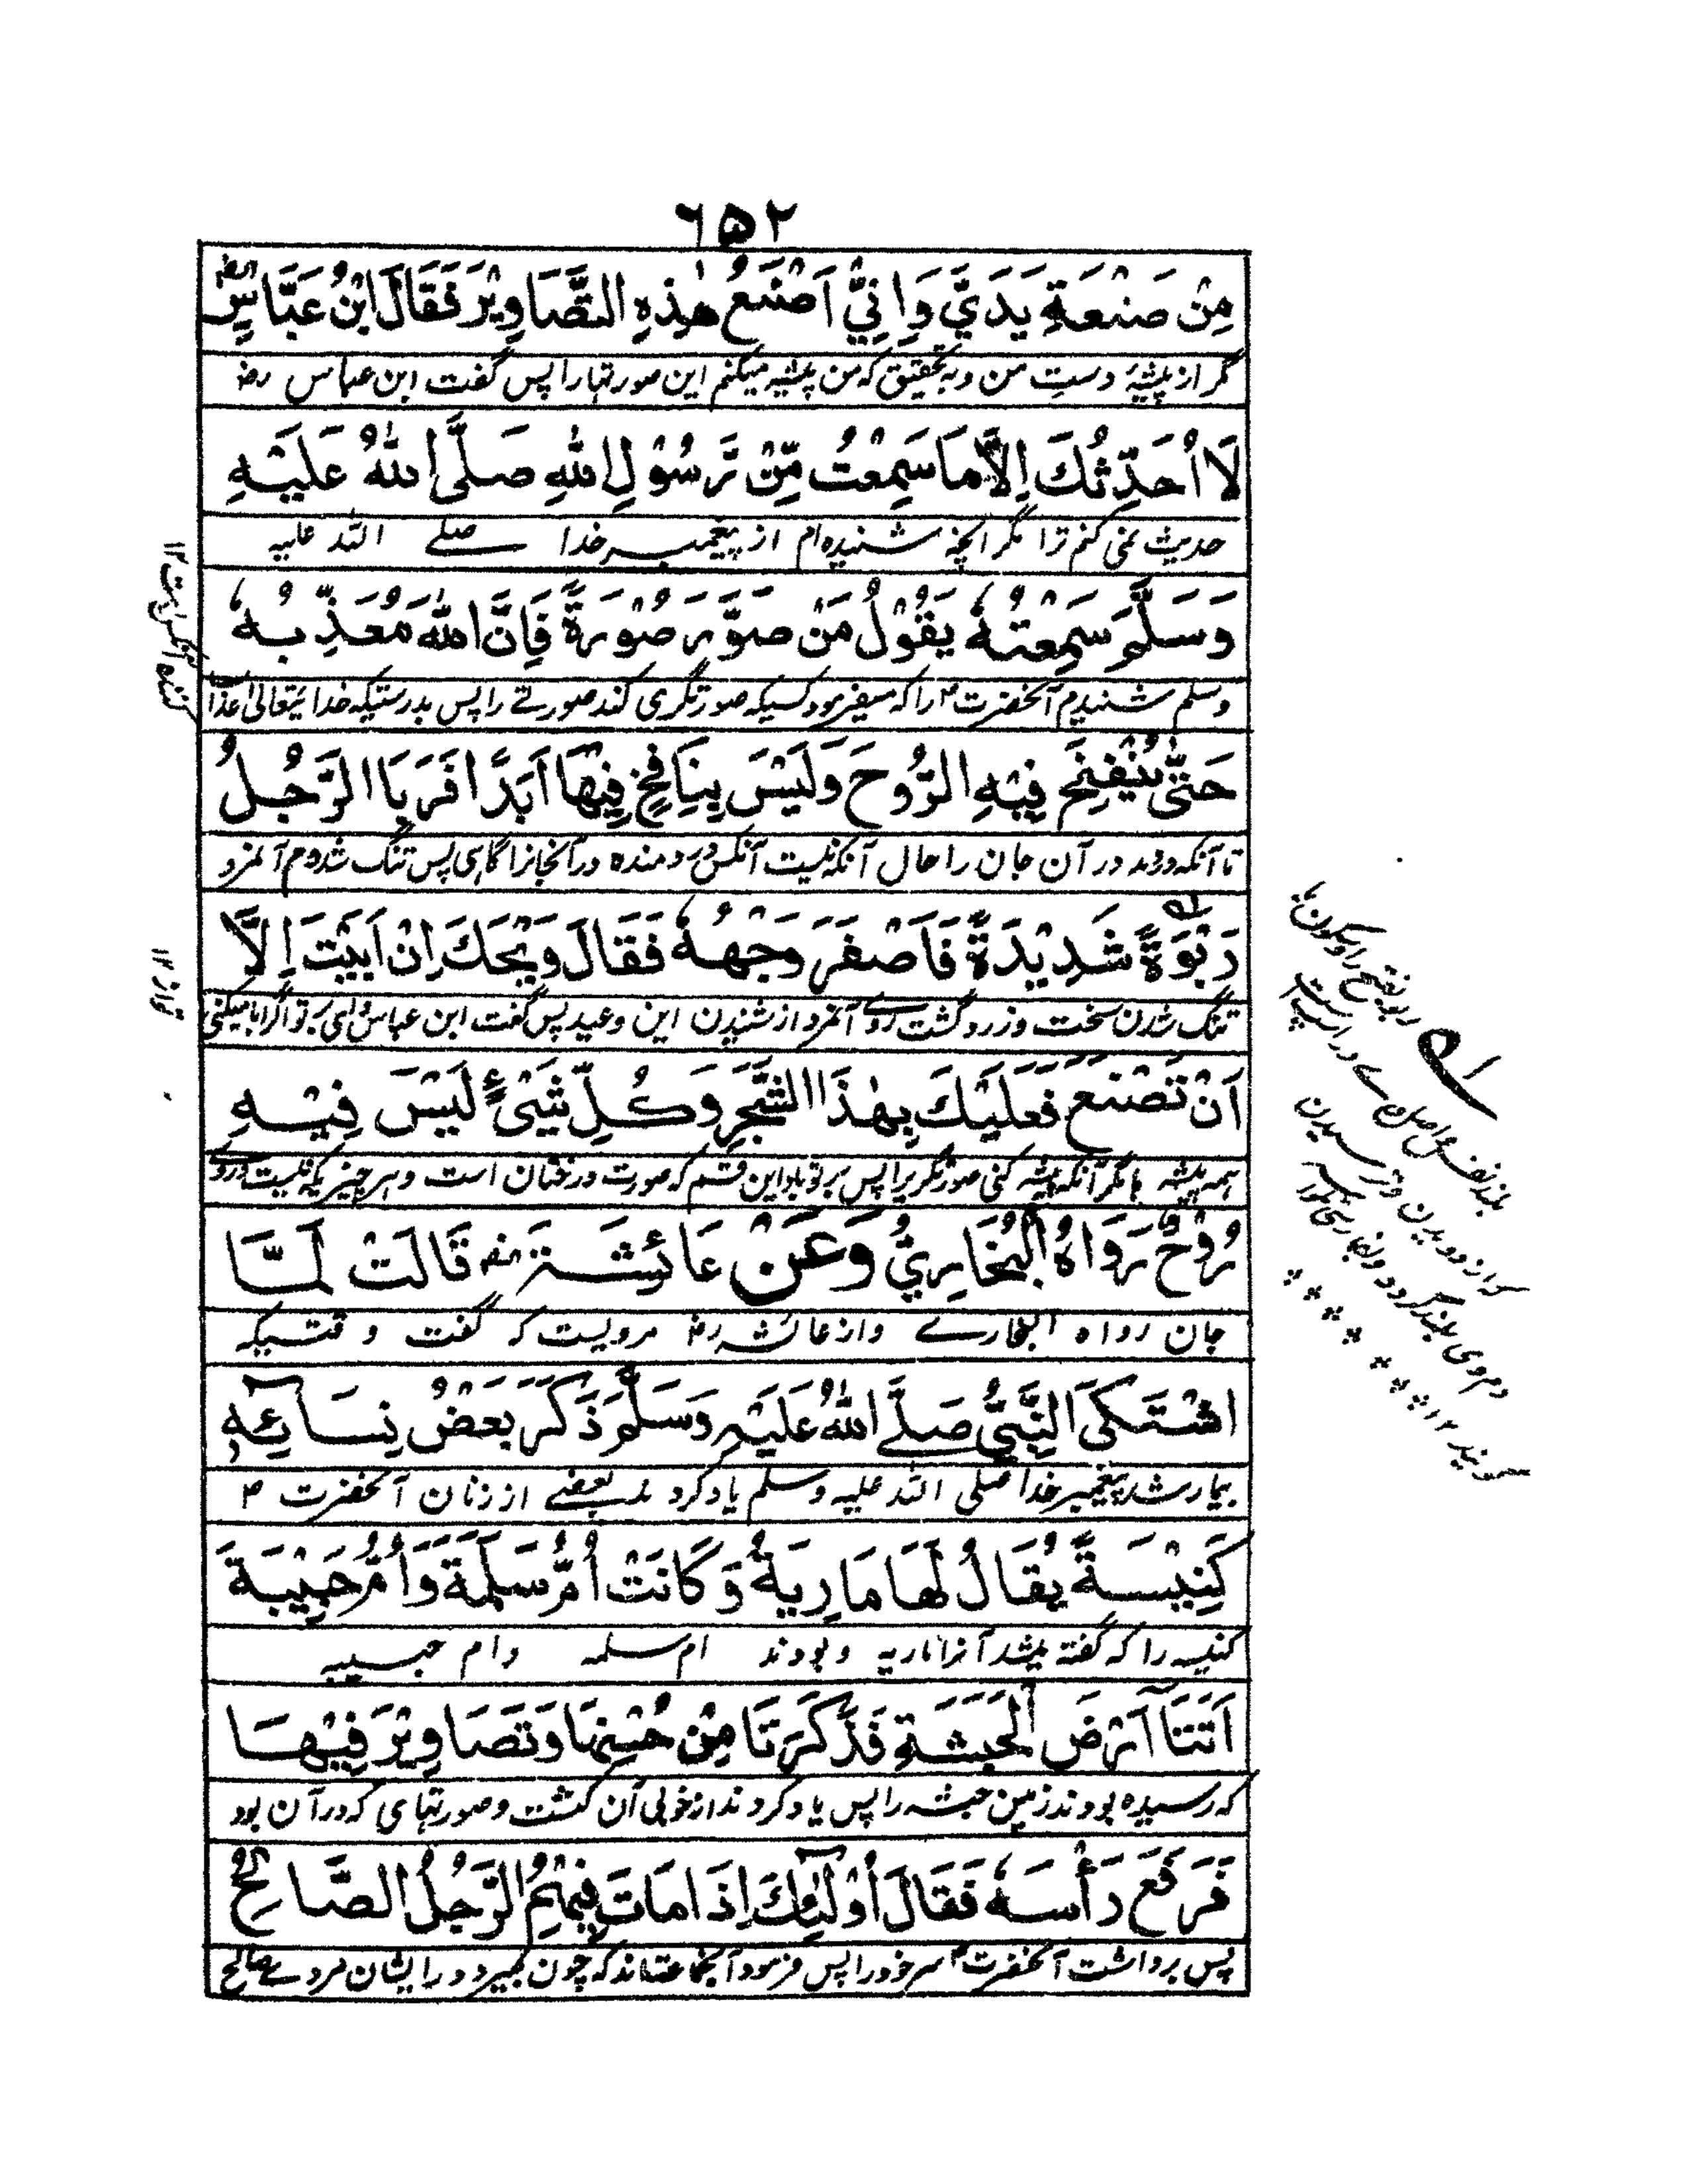 ۶۵۲
مِنْ صَنْعَةِ يَدَيَّ وَاِنِّيْ اَصْنَعُ هٰذِهِ التَّصَاوِيْرَ فَقَالَ ابْنُ عَبَّاسٍ
مگر از پیشهٔ دست من و به تحقیق که من پیشه میکنم این صورتها را پس گفت ابن عباس رض
لَا اُحَدِّثُكَ اِلَّا مَا سَمِعْتُ مِنْ رَّسُوْلِ اللهِ صَلَّى اللهُ عَلَيْهِ
حدیث نمی کنم ترا مگر آنچه شنیده ام از پیغمبر خدا صلے الله علیه
وَسَلَّمَ سَمِعْتُهٗ يَقُوْلُ مَنْ صَوَّرَ صُوْرَةً فَاِنَّ اللهَ مُعَذِّبُهٗ
وسلم شنیدم آنحضرت ۴ را که میفرمود کسیکه صورتگری کند صورتے را پس بدرستیکه خدایتعالی عذاب
کننده آنکس است ۱۲
حَتّٰى يَنْفُخَ فِيْهِ الرُّوْحَ وَلَيْسَ بِنَافِخٍ فِيْهَا اَبَدًا فَرَبَا الرَّجُلُ
تا آنکه دمد در آن جان را حال آنکه نیست آنکس دمنده در آنجا نرا گاہی پس تنگ شد دم آنمرد
رَبْوَةً شَدِيْدَةً فَاصْفَرَّ وَجْهُهٗ فَقَالَ وَيْحَكَ اِنْ اَبَيْتَ اِلَّا
تنگ شدن سخت و زرد گشت روے آنمرد از شنیدن این وعید پس گفت ابن عباس وای بر تو اگر ابا میکنی
تو از ۱۲
اَنْ تَصْنَعَ فَعَلَيْكَ بِهٰذَا الشَّجَرِ وَكُلِّ شَيْءٍ لَيْسَ فِيْهِ
همه پیشه ہا مگر آنکه پیشه کنی صورتگری را پس بر تو باد این قسم که صورت درختان است و هر چیزیکه نیست در وے
رُوْحٌ رَوَاهُ الْبُخَارِيُّ وَعَنْ عَائِشَةَ رض قَالَتْ لَمَّا
جان رواه البخارے و از عائشه رض مرویست که گفت وقتیکه
اشْتَكَى النَّبِيُّ صَلَّے اللهُ عَلَيْهِ وَسَلَّمَ ذَكَرَ بَعْضُ نِسَائِهٖ
بیمار شد پیغمبر خدا صلی الله علیه وسلم یاد کرد بعضے از زنان آنحضرت ۴
كَنِيْسَةً يُقَالُ لَهَا مَارِيَةُ وَكَانَتْ اُمُّ سَلَمَةَ وَاُمُّ حَبِيْبَةَ
کنیسه را که گفته میشد آنرا ماریه و بودند ام سلمه و ام حبیبه
اَتَتَا اَرْضَ الْحَبَشَةِ فَذَكَرَتَا مِنْ حُسْنِهَا وَتَصَاوِيْرَ فِيْهَا
که رسیده بودند زمین حبشه را پس یاد کردند از خوبی آن کنشت و صورتهای که در آن بود
فَرَفَعَ رَأْسَهٗ فَقَالَ اُولٰئِكَ اِذَا مَاتَ فِيْهِمُ الرَّجُلُ الصَّالِحُ
پس برداشت آنحضرت ۴ سر خود را پس فرمود آنجماعه اند که چون بمیرد در ایشان مردے صالح
ربو بفتح را و سکون با
بلند نفس
گویند ۱۲